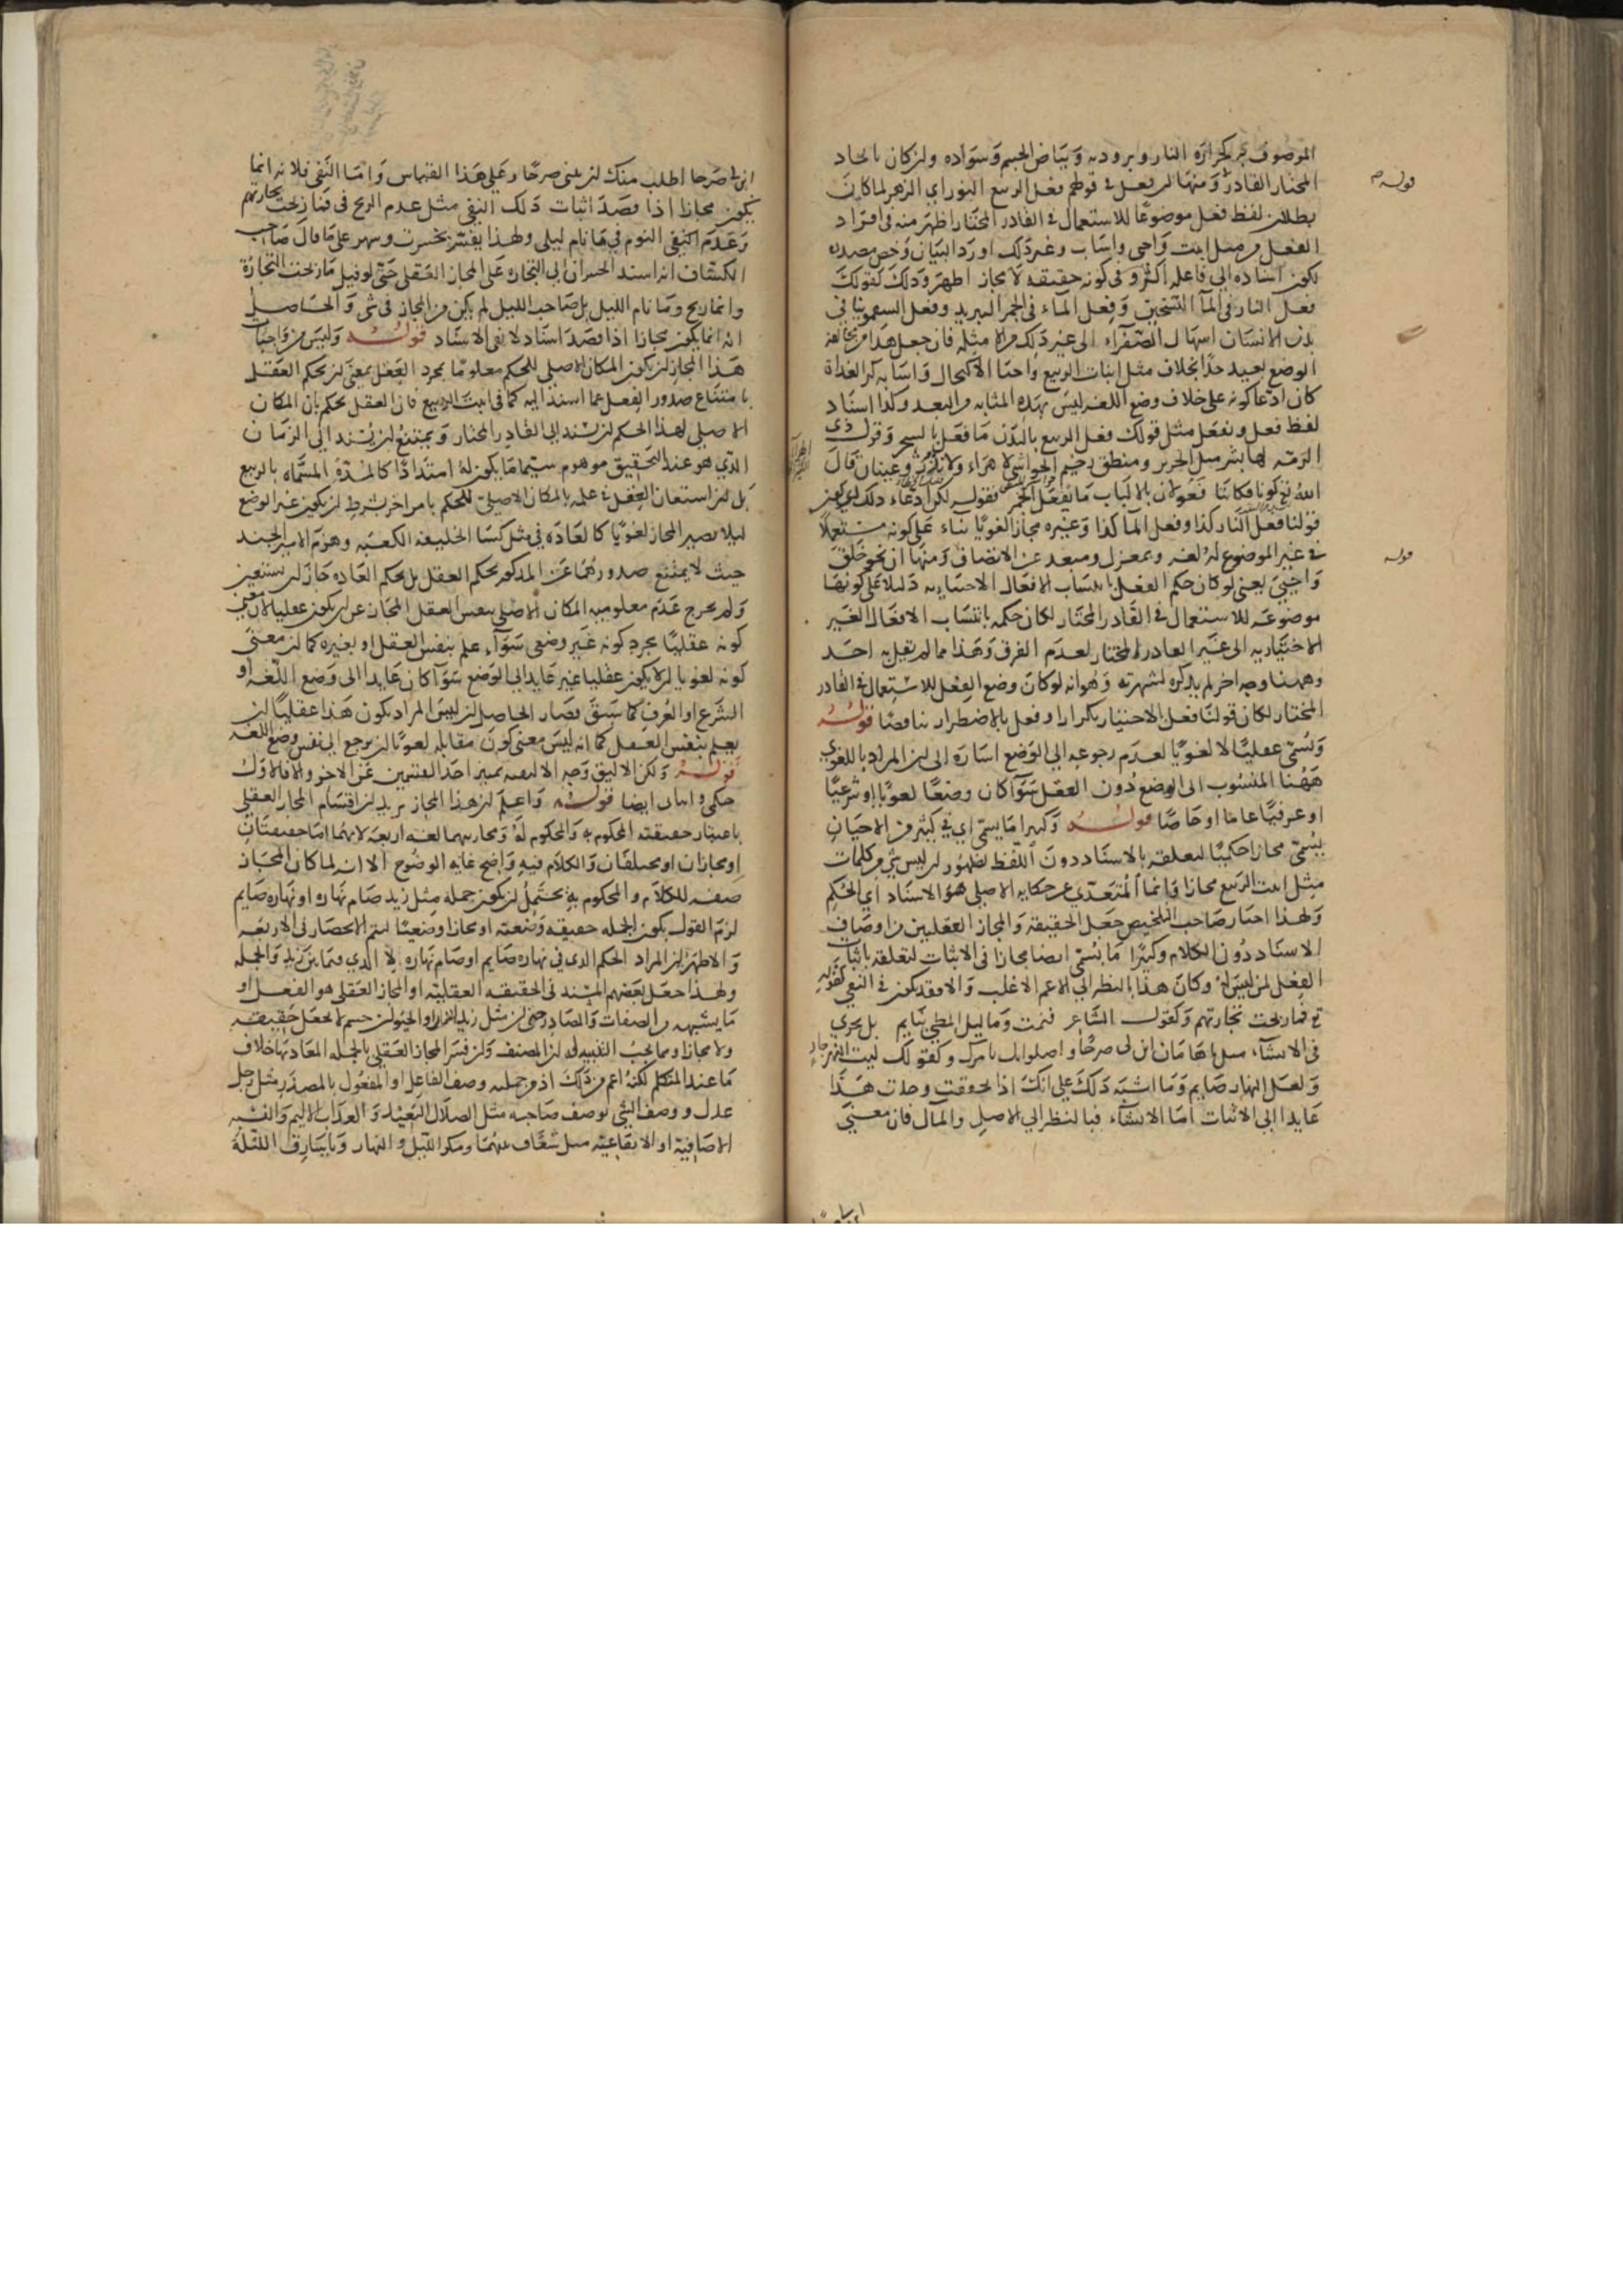 الموصوف بحرارة النار وبرودته وبياض الجسم وسواده وان كان بايجاد
المختار القادر ومنها ان يفعل في قولهم فعل الربيع النور اي الزهر لما كان
بطلان لفظ فعل موضوعا للاستعمال في القادر المختار اظهر منه في افراد
الفعل من مثل انبت واحيى واشاب وغير ذلك اورد البيان وخص بصدده
لكون اسناده الى فاعله اكثر وفي كونه حقيقة لا مجاز اظهر وذلك كقولك
فعل النار في الماء التسخين وفعل الماء في الجمر التبريد وفعل السقمونيا في
بدن الانسان اسهال الصفراء الى غير ذلك من الامثلة فان جعل هذا من مخالفة
الوضع بعيد جدا بخلاف مثل انبات الربيع واحيا الاكتحال واشابه كر الغداة
كان ادعا كونه على خلاف وضع اللغة ليس بهذه المثابة من البعد وكذا اسناد
لفظ فعل ويفعل مثل قولك فعل الربيع بالبدن ما فعل بالسحر وقول ذي
الرمة لها بشر مثل الحرير ومنطق رخيم الحواشي لا هراء ولا نزر وعينان قال
الله كونا فكانتا فعولان بالالباب ما يفعل الخمر فقولك لكن ادعاء ذلك ان يكون
قولنا فعل النار كذا وفعل الما كذا وغيره مجازا لغويا بناء على كونه مستعملا
في غير الموضوع له لغة وبمعزل ومبعد عن الانصاف ومنها ان نحو خلق
واحيى يعنى لو كان حكم العقل بانتساب الافعال الاختيارية دليلا على كونها
موضوعة للاستعمال في القادر المختار لكان حكمه بانتساب الافعال الغير
الاختيارية الى غير القادر المختار لعدم الفرق وهذا مما لم يقل به احد
وههنا وجه اخر لم يذكره لشهرته وهو انه لو كان وضع الفعل للاستعمال في القادر
المختار لكان قولنا فعل الاختيار تكرارا وفعل بالاضطرار تناقضا قوله
وتسمى عقليا لا لغويا لعدم رجوعه الى الوضع اشارة الى ان المراد باللغوي
ههنا المنسوب الى الوضع دون العقل سوآ كان وضعا لغويا او شرعيا
او عرفيا عاما او خاصا قوله وكثيرا ما يسمى اي في كثير من الاحيان
يسمى مجازا حكميا لتعلقه بالاسناد دون اللفظ لظهور ان ليس شي من كلمات
مثل انبت الربيع مجازا وانما المتعدي عن حكايه الاصلي هو الاسناد اي الحكم
ولهذا اختار صاحب التلخيص جعل الحقيقة والمجاز العقليين من اوصاف
الاسناد دون الكلام وكثيرا ما يسمى ايضا مجازا في الاثبات لتعلقه باثبات
الفعل لمن ليس له وكان هذا بالنظر الى الاعم الاغلب والا فقد يكون في النفي كقوله
تع فما ربحت تجارتهم وكقول الشاعر فنمت وما ليل المطي بنايم بل يجري
في الانشاء مثل يا هامان ابن لي صرحا واصلواتك تامرك وكقولك ليت النهر جار
ولعل النهار صايم وما اشبه ذلك على انك اذا حققت وجدت هذا
عايدا الى الاثبات اما الانشاء فبالنظر الى الاصل والمال فان معنى
ابن لي صرحا اطلب منك ان تبني صرحا وعلى هذا القياس واما النفي فلانه انما
يكون مجازا اذا قصد اثبات ذلك النفي مثل عدم الربح في فما ربحت تجارتهم
وعدم النفي النوم في ما نام ليلي ولهذا يفسر بخسرت وسهر على ما قال صاحب
الكشاف انه اسند الخسران الى التجارة على المجاز العقلي حتى لو قيل ما ربحت التجارة
وانما ربح وما نام الليل بل صاحب الليل لم يكن من المجاز في شى والحاصل
انه انما يكون مجازا اذا قصد اسناد لا نفي الاسناد قوله وليس من واجبات
هذا المجاز ان يكون المكان الاصلي للحكم معلوما بمجرد العقل بمعنى ان يحكم العقل
بامتناع صدور الفعل عما اسند اليه كما في انبت الربيع فان العقل يحكم بان المكان
الاصلي لهذا الحكم ان يسند الى القادر المختار ويمتنع ان يسند الى الزمان
الذي هو عند التحقيق موهوم سيما ما يكون له امتدادا كالمدة المسماه بالربيع
بل ان استعان العقل في علمه بالمكان الاصلي للحكم بامر اخر بشرط ان يكون غير الوضع
ليلا يصير المجاز لغويا كالعادة في مثل كسا الخليفة الكعبه وهزم الامير الجند
حيث لا يمتنع صدورهما عن المذكور بحكم العقل بل بحكم العادة جاز ان يستعين
ولم يخرج عدم معلومية المكان الاصلي بنفس العقل المجاز عن ان يكون عقليا لان معنى
كونه عقليا مجرد كونه غير وضعي سوآء علم بنفس العقل او بغيره كما ان معنى
كونه لغويا ان لا يكون عقليا غير عايد الى الوضع سوآ كان عايدا الى وضع اللغه او
الشرع او العرف كما سبق فصار الحاصل ان ليس المراد بكون هذا عقليا ان
يعلم بنفس العقل كما انه ليس معنى كون مقابله لغويا ان يرجع الى نفس وضع اللغة
قوله ولكن الاليق وجه الاليقية تمييز احد القسمين عن الاخر والا فالاول
حكمي واثبات ايضا قوله واعلم ان هذا المجاز يريد ان اقسام المجاز العقلي
باعتبار حقيقة المحكوم به والمحكوم له ومجازيهما لغة اربعة لانهما اما حقيقتان
او مجازان او مختلفان والكلام فيه واضح غاية الوضوح الا انه لما كان المجاز
صفة للكلام والمحكوم به يحتمل ان يكون جملة مثل زيد صام نهاره او نهاره صايم
لزم القول بكون الجملة حقيقة وضعية او مجازا وضعيا ليتم الانحصار في الاربعة
والاظهر ان المراد الحكم الذي في نهاره صايم او صام نهاره لا الذي فيما بين زيد والجملة
ولهذا جعل بعضهم المسند في الحقيقة العقلية او المجاز العقلي هو الفعل او
ما يشبهه من الصفات والمصادر حتى ان مثل زيد انسان او الحيوان جسم لا يجعل حقيقة
ولا مجازا ومما يجب التنبيه له ان المصنف وان فسر المجاز العقلي بالجملة المعاد بها خلاف
ما عند المتكلم لكنه اعم من ذلك اذ من جملته وصف الفاعل او المفعول بالمصدر مثل رجل
عدل ووصف الشي بوصف صاحبه مثل الضلال البعيد والعذاب الاليم والنسبة
الاضافية او الايقاعية مثل شقاق بينهما ومكر الليل والنهار ويا سارق الليلة